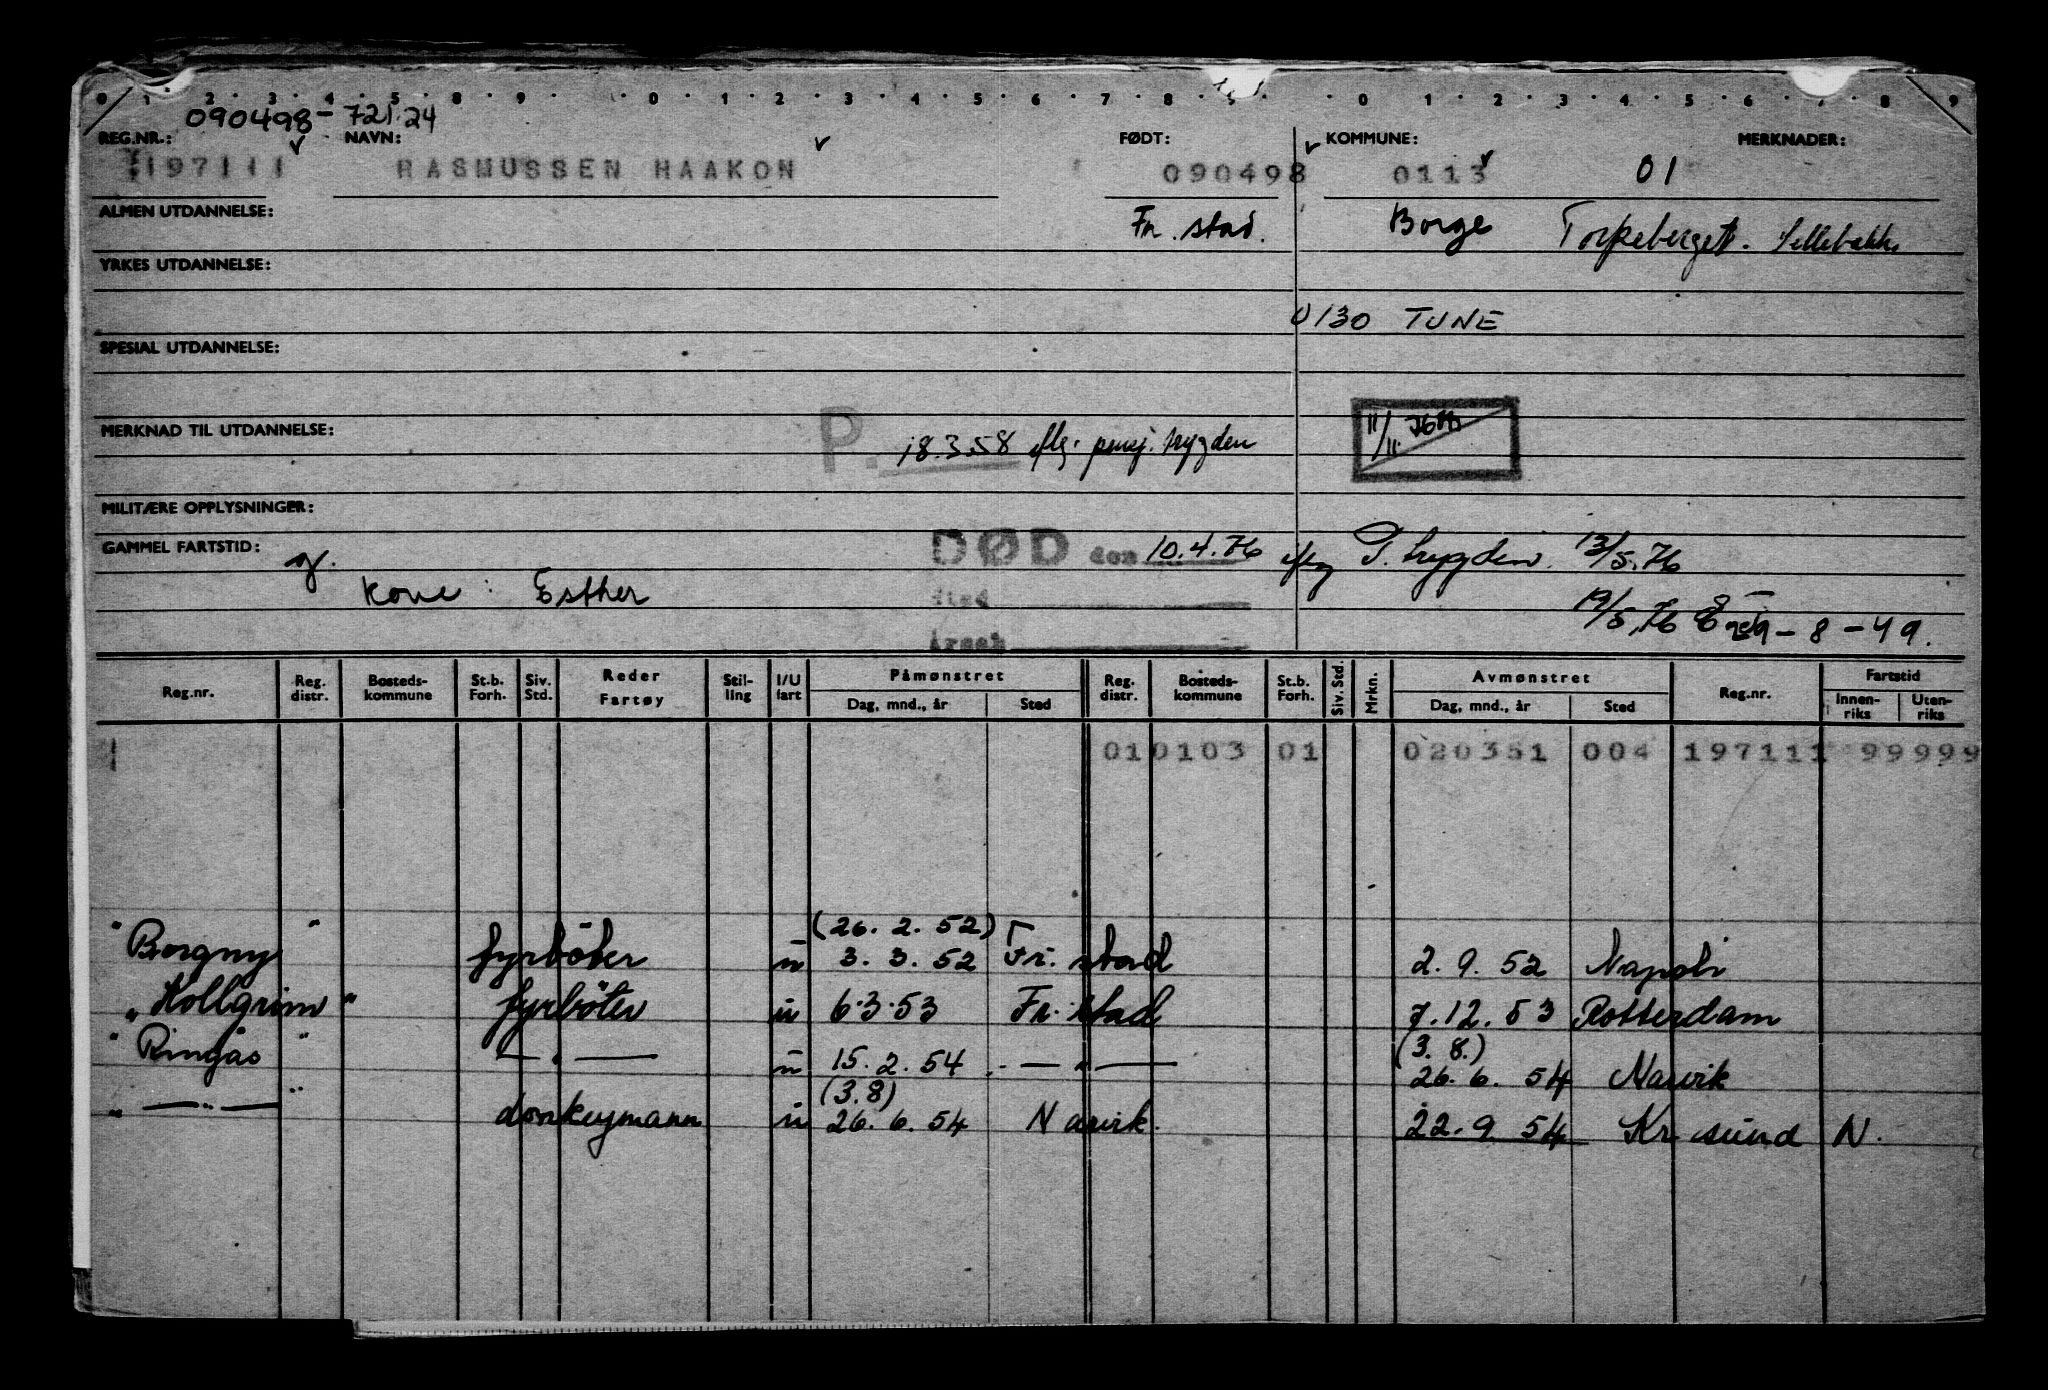 0 1 2 3 4 5 8 9 0 1 2 3 4 5 6 7 8 9 0 1 2 3 4 5 6 7 8 9
090498-721.24
REG.NR.: NAVN: FØDT: KOMMUNE: MERKNADER:
197111 RASMUSSEN HAAKON 090498 0113 01
ALMEN UTDANNELSE: Fr. stad. Borge Torpeberget. Sellebakk
YRKES UTDANNELSE:
0130 TUNE
SPESIAL UTDANNELSE:
MERKNAD TIL UTDANNELSE: P. 18.3.58 iflg. pensj. trygden 11/11.76
MILITÆRE OPPLYSNINGER:
GAMMEL FARTSTID: DØD den 10.4.76 iflg P. trygden 13/5.76
g.
Kone: Esther Sted 19/5.76
Årsak 29-8-49.
Reg.nr. Reg. distr. Bosteds-kommune St.b. Forh. Siv. Std. Reder Fartøy Stil-ling I/U fart Påmønstret Dag, mnd., år Sted Reg. distr. Bosteds-kommune St.b. Forh. Siv. Std. Mrkn. Avmønstret Dag, mnd., år Sted Reg.nr. Fartstid Innen-riks Uten-riks
010103 01 020351 004 197111 99999
(26. 2. 52)
"Borgny" fyrböter u 3. 3. 52 Fr. stad 2. 9. 52 Napoli
"Hollgrim" fyrböter u 6.3.53 Fr. stad 7.12.53 Rotterdam
(3. 8.)
"Ringås" — " — u 15. 2. 54 — " — 26. 6. 54 Narvik
(3.8)
" — " — " donkeymann u 26. 6. 54 Narvik. 22. 9. 54 Kr. sund N.